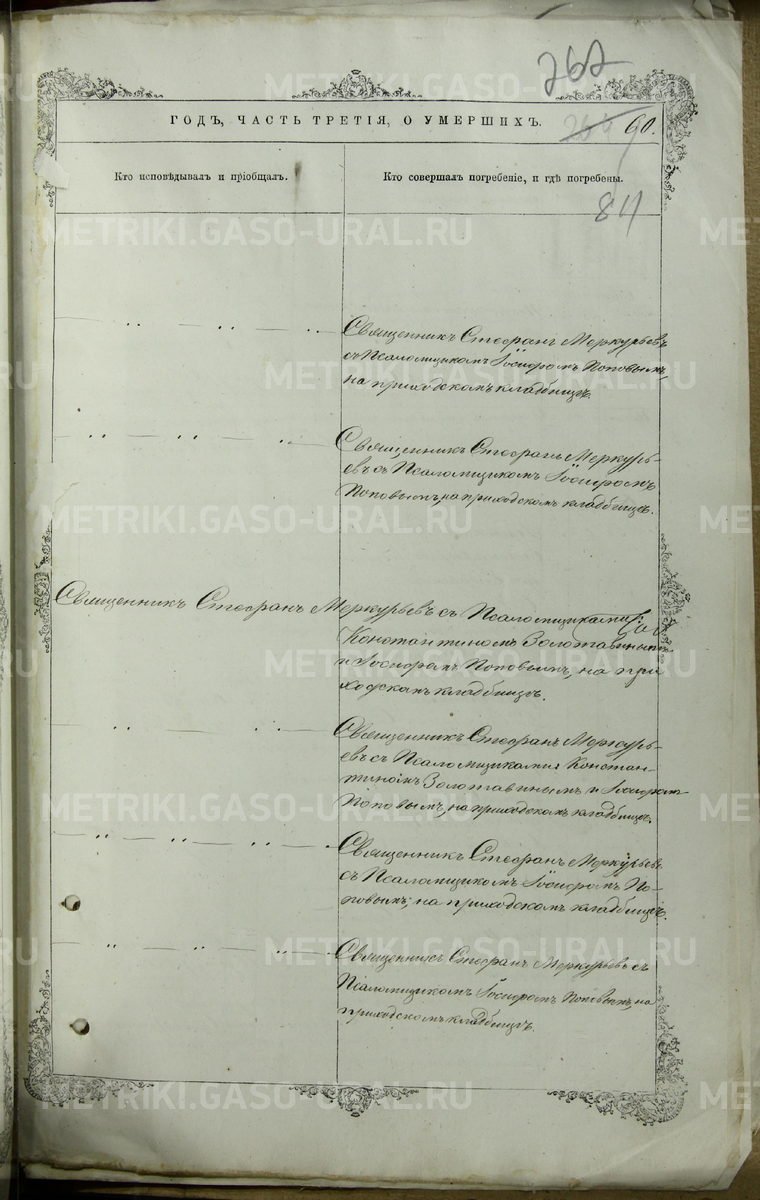 262
ГОДЪ, ЧАСТЬ ТРЕТІЯ, О УМЕРШИХЪ.
60.
Кто исповѣдывалъ и пріобщалъ.
Кто совершалъ погребеніе, и гдѣ погребены.
Священникъ Стефанъ Меркурьевъ
съ Псаломщикомъ Іосифомъ Поповымъ,
на приходскомъ кладбищѣ.
Священникъ Стефанъ Меркурь-
евъ съ Псаломщикомъ Іосифомъ
Поповымъ, на приходскомъ кладбищѣ.
Священникъ Стефанъ Меркурьевъ съ Псаломщиками:
Константиномъ Золотавинымъ
и Іосифомъ Поповымъ, на при
ходскомъ кладбищѣ.
Священникъ Стефанъ Меркурь-
евъ съ Псаломщиками Констан-
тиномъ Золотавинымъ и Іосифомъ
Поповымъ, на приходскомъ кладбищѣ.
Священникъ Стефанъ Меркурьевъ
съ Псаломщикомъ Іосифомъ По-
повымъ, на приходскомъ кладбищѣ.
Священникъ Стефанъ Меркурьевъ съ
Псаломщикомъ Іосифомъ Поповымъ, на
приходскомъ кладбищѣ.
METRIKI.GASO-URAL.RU